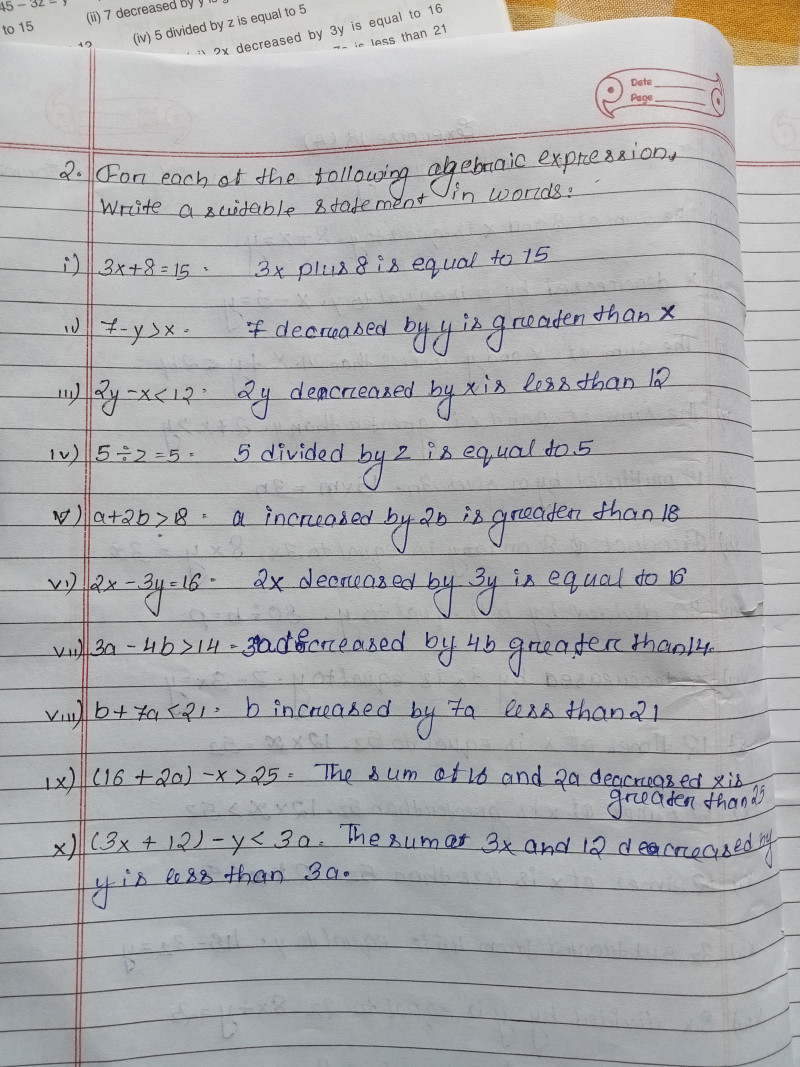 45 - 3z = y
to 15
(ii) 7 decreased by y is
(iv) 5 divided by z is equal to 5
12
2x decreased by 3y is equal to 16
is less than 21
Date
Page
2. For each of the following algebraic expression,
Write a suitable statement in words:
i) 3x+8=15. 3x plus 8 is equal to 15
ii) 7-y>x. 7 decreased by y is greater than x
iii) 2y-x<12. 2y deacreased by x is less than 12
iv) 5÷z=5. 5 divided by z is equal to 5
v) a+2b>18. a increased by 2b is greater than 18
vi) 2x-3y=16. 2x decreased by 3y is equal to 16
vii) 3a-4b>14 - 3a decreased by 4b greater than 14.
viii) b+7a<21. b increased by 7a less than 21
ix) (16+2a)-x>25. The sum of 16 and 2a deacreased x is
greater than 25
x) (3x+12)-y<3a. The sum of 3x and 12 deacreased by
y is less than 3a.